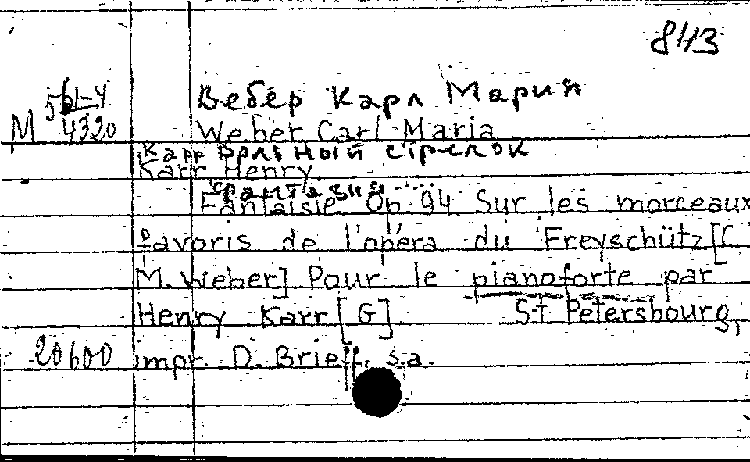 8113
Вебер Карл Мария
561-4
М 4320
Weber Carl Maria
Карр Вольный стрелок
Karr Henry
Фантазия
Fantaisie. Op. 94 Sur les morceaux
favoris de l'opéra du Freyschütz [C
M. Weber] Pour le pianoforte par
Henry Karr [G] St Petersbourg,
20600 impr. D. Brieff, s.a.